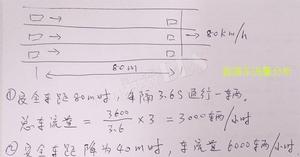 →80km/h
80m
道路车流量分析
①安全车距80m时，每隔3.6S通行一辆。
总车流量 = 3600/3.6 ×3 = 3000辆/小时
②安全车距降为40m时，车流量6000辆/小时